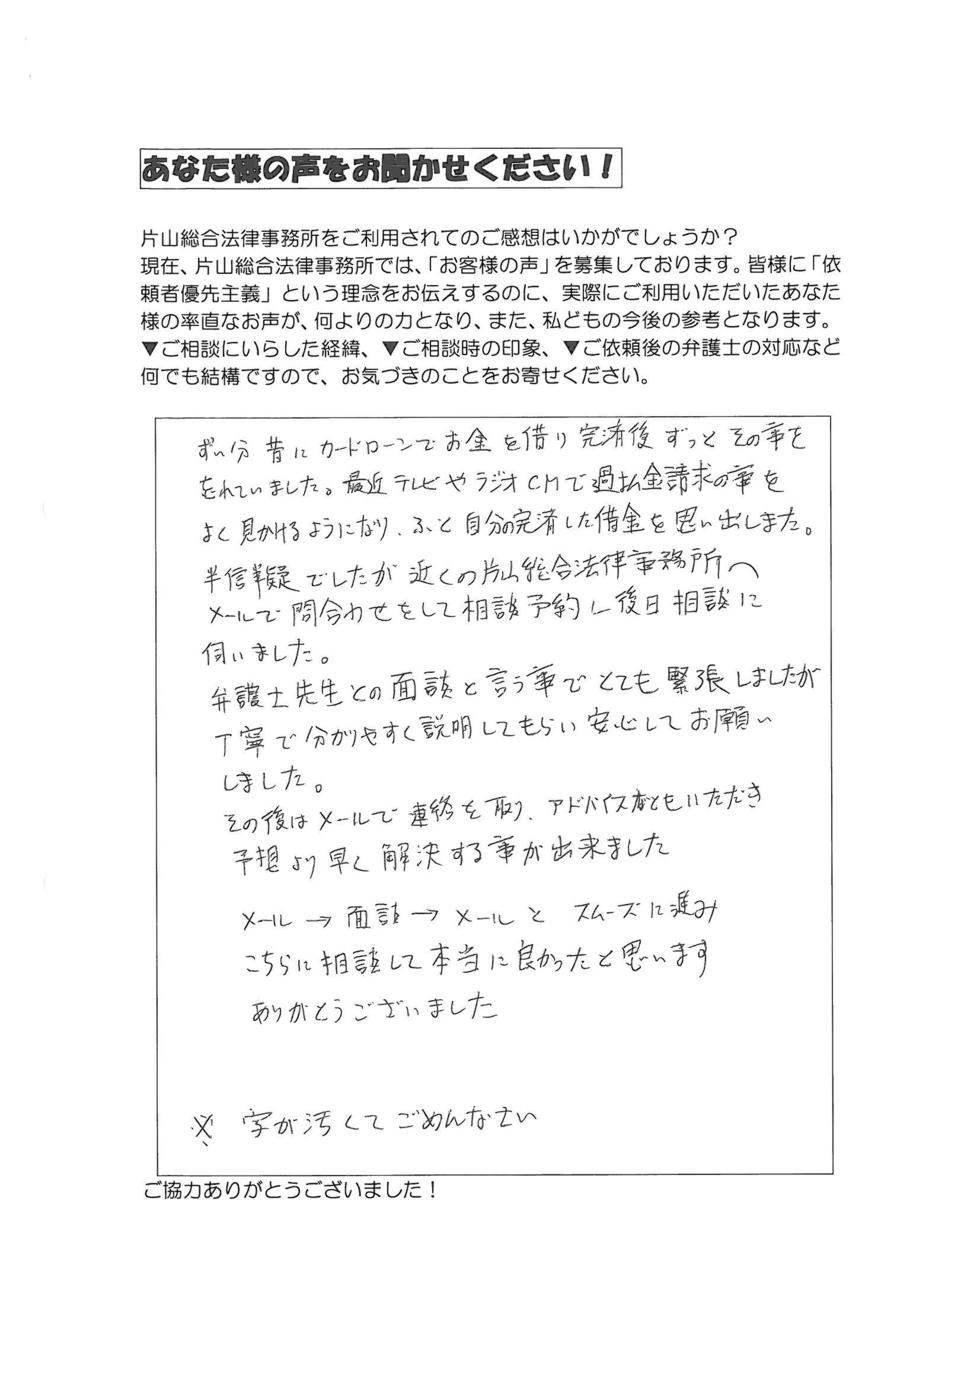 あなた様の声をお聞かせください！
片山総合法律事務所をご利用されてのご感想はいかがでしょうか？
現在、片山総合法律事務所では、「お客様の声」を募集しております。皆様に「依
頼者優先主義」という理念をお伝えするのに、実際にご利用いただいたあなた
様の率直なお声が、何よりの力となり、また、私どもの今後の参考となります。
▼ご相談にいらした経緯、▼ご相談時の印象、▼ご依頼後の弁護士の対応など
何でも結構ですので、お気づきのことをお寄せください。
ずい分昔にカードローンでお金を借り完済後ずっとその事を
忘れていました。最近テレビやラジオCMで過払金請求の事を
よく見かけるようになり、ふと自分の完済した借金を思い出しました。
半信半疑でしたが近くの片山総合法律事務所へ
メールで問合わせをして相談予約し後日相談に
伺いました。
弁護士先生との面談と言う事でとても緊張しましたが
丁寧で分かりやすく説明してもらい安心してお願い
しました。
その後はメールで連絡を取り、アドバイスなどもいただき
予想より早く解決する事が出来ました
メール→面談→メールと スムーズに進み
こちらに相談して本当に良かったと思います
ありがとうございました
※ 字が汚くてごめんなさい
ご協力ありがとうございました！